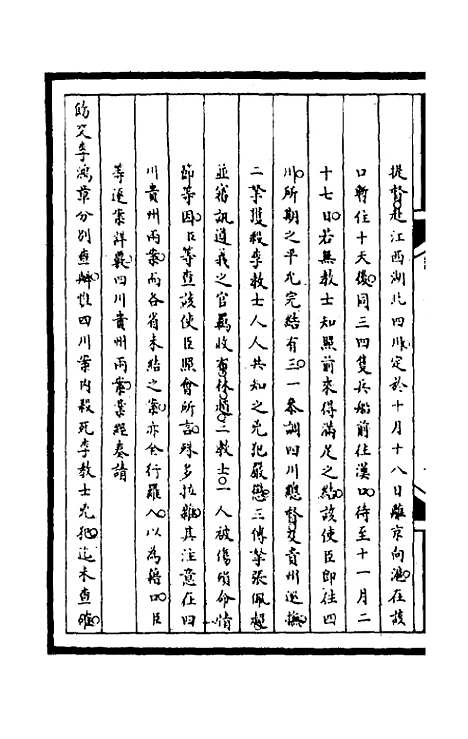 提督赴江西湖北四川定於十月十八日離京向滬在該
口暫住十天後同三四隻兵船前往漢口待至十一月二
十七日若無教士知照前來得滿足之結該使臣即往四
川所期之平允完結有三一參訓四川總督及貴州巡撫
二拏獲殺李教士人人共知之兇犯嚴懲三傳拏張佩超
並審訊遵義之官羈收教士一人被傷殞命情
節等因臣等查該使臣照會所言殊多拉雜其注意在四
川貴州兩案而各省未結之案亦全行羅入以為藉口臣
等逐案詳覈四川貴州兩案業經奏請
飭交李鴻章分別查辦惟四川案內殺死李教士兇犯迄未查確